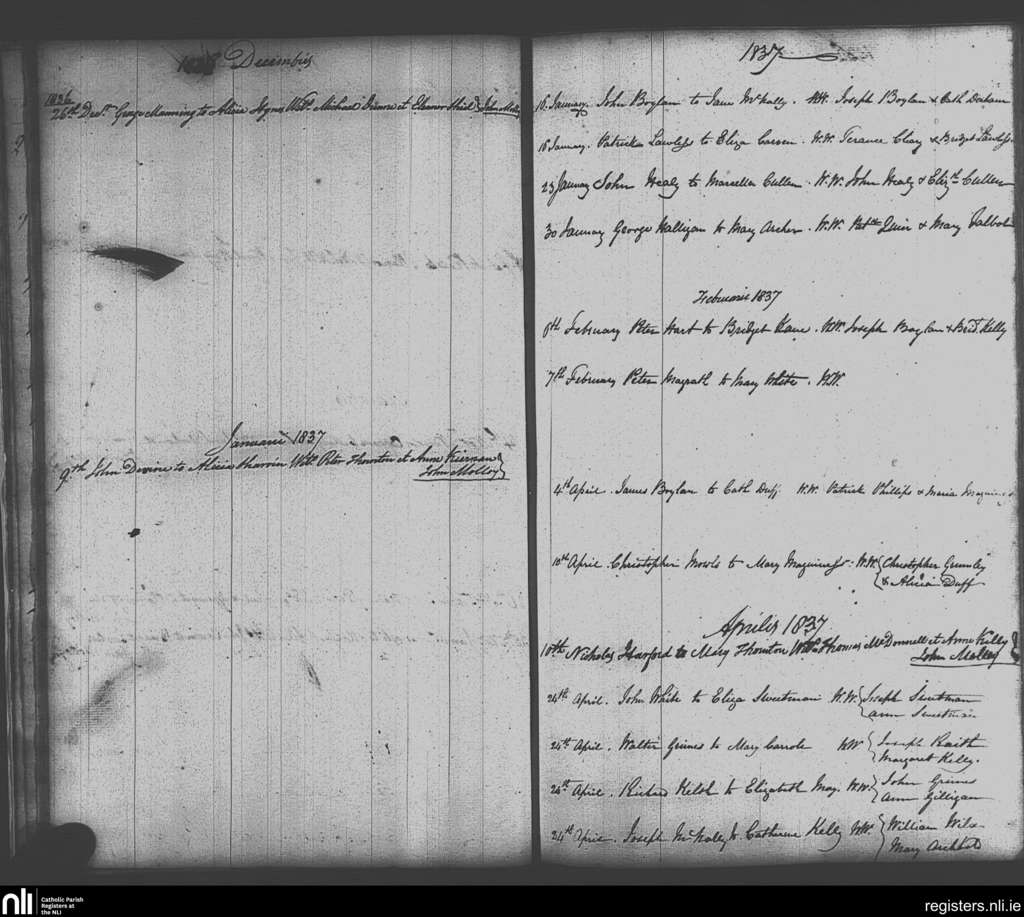 Decembris
1836
26th Decr. George Manning to Alicia Lynes Witts. Michael et Eleanor Shiel John Molloy
Januarii 1837
9th John Devine to Alicia Witts. Peter Thornton et Anne Kiernan
John Molloy
1837
16 January John Boylan to Jane McNally. WW. Joseph Boylan & Cath
16 January. Patrick Lawless to Eliza Carson. W.W. Terance Clary & Bridget Lawless
23 January John Healy to Marcella Cullen. W.W. John Healy & Elizth Cullen
30 January George Halligan to Mary Archer. W.W. Patk Quin & Mary Talbot
Februarii 1837
6th February Peter Hart to Bridget Kane. WW. Joseph Boylan & Brid. Kelly
7th February Peter Magrath to Mary White. WW.
4th April. James Boylan to Cath Duff. W.W. Patrick Phillips & Maria
10th April. Christopher to Mary Maguiness. W.W. Christopher Grumley
& Alicia Duff
Aprilis 1837
10th Nicholas Harford to Mary Thornton Witts. Thomas McDonnell et Anne Kelly
John Molloy
24th April. John White to Eliza Sweetman W.W. Joseph Sweetman
ann Sweetman
24th April. Walter Grimes to Mary Carrole WW Joseph Raith
Margaret Kelly.
24th April. Richard Kelsh to Elizabeth May. W.W. John Grimes
Ann Gilligan
24th April. Joseph McNally to Catherine Kelly WW. William
Mary Archbold
nli
Catholic Parish
Registers at
the NLI
registers.nli.ie